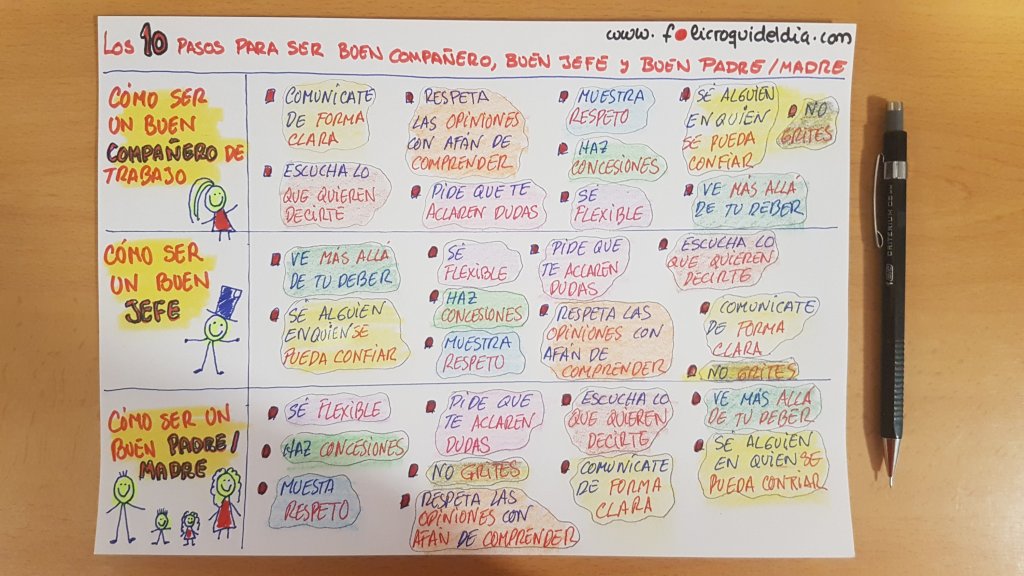 www.folicroquideldia.com
Los 10 PASOS PARA SER BUEN COMPAÑERO, BUEN JEFE Y BUEN PADRE/MADRE
CÓMO SER
UN BUEN
COMPAÑERO DE
TRABAJO
COMUNÍCATE
DE FORMA
CLARA
RESPETA
LAS OPINIONES
CON AFÁN DE
COMPRENDER
MUESTRA
RESPETO
SÉ ALGUIEN
EN QUIEN
SE PUEDA
CONFIAR
NO
GRITES
ESCUCHA LO
QUE QUIEREN
DECIRTE
PIDE QUE TE
ACLAREN DUDAS
HAZ
CONCESIONES
SÉ
FLEXIBLE
VE MÁS ALLÁ
DE TU DEBER
CÓMO SER
UN BUEN
JEFE
VE MÁS ALLÁ
DE TU DEBER
SÉ
FLEXIBLE
PIDE QUE
TE ACLAREN
DUDAS
ESCUCHA LO
QUE QUIEREN
DECIRTE
SÉ ALGUIEN
EN QUIEN SE
PUEDA CONFIAR
HAZ
CONCESIONES
MUESTRA
RESPETO
RESPETA LAS
OPINIONES CON
AFÁN DE
COMPRENDER
COMUNÍCATE
DE FORMA
CLARA
NO GRITES
CÓMO SER UN
BUEN PADRE/
MADRE
SÉ FLEXIBLE
HAZ CONCESIONES
MUESTA
RESPETO
PIDE QUE
TE ACLAREN
DUDAS
NO GRITES
RESPETA LAS
OPINIONES CON
AFÁN DE COMPRENDER
ESCUCHA LO
QUE QUIEREN
DECIRTE
COMUNÍCATE
DE FORMA
CLARA
VE MÁS ALLÁ
DE TU DEBER
SÉ ALGUIEN
EN QUIEN SE
PUEDA CONFIAR